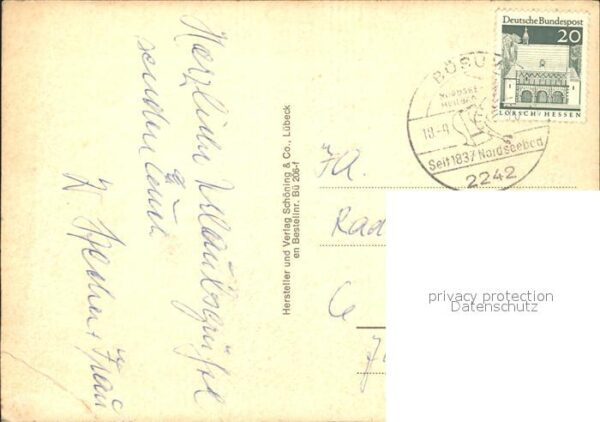 Herzliche Urlaubsgrüße
senden euch
H. Becker + Frau
Hersteller und Verlag Schöning & Co., Lübeck
en Bestellnr. Bü 206-f
Deutsche Bundespost
20
LORSCH/HESSEN
BÜSUM
18.-9
Seit 1837 Nordseebad
2242
Fa.
Rad
6
privacy protection
Datenschutz